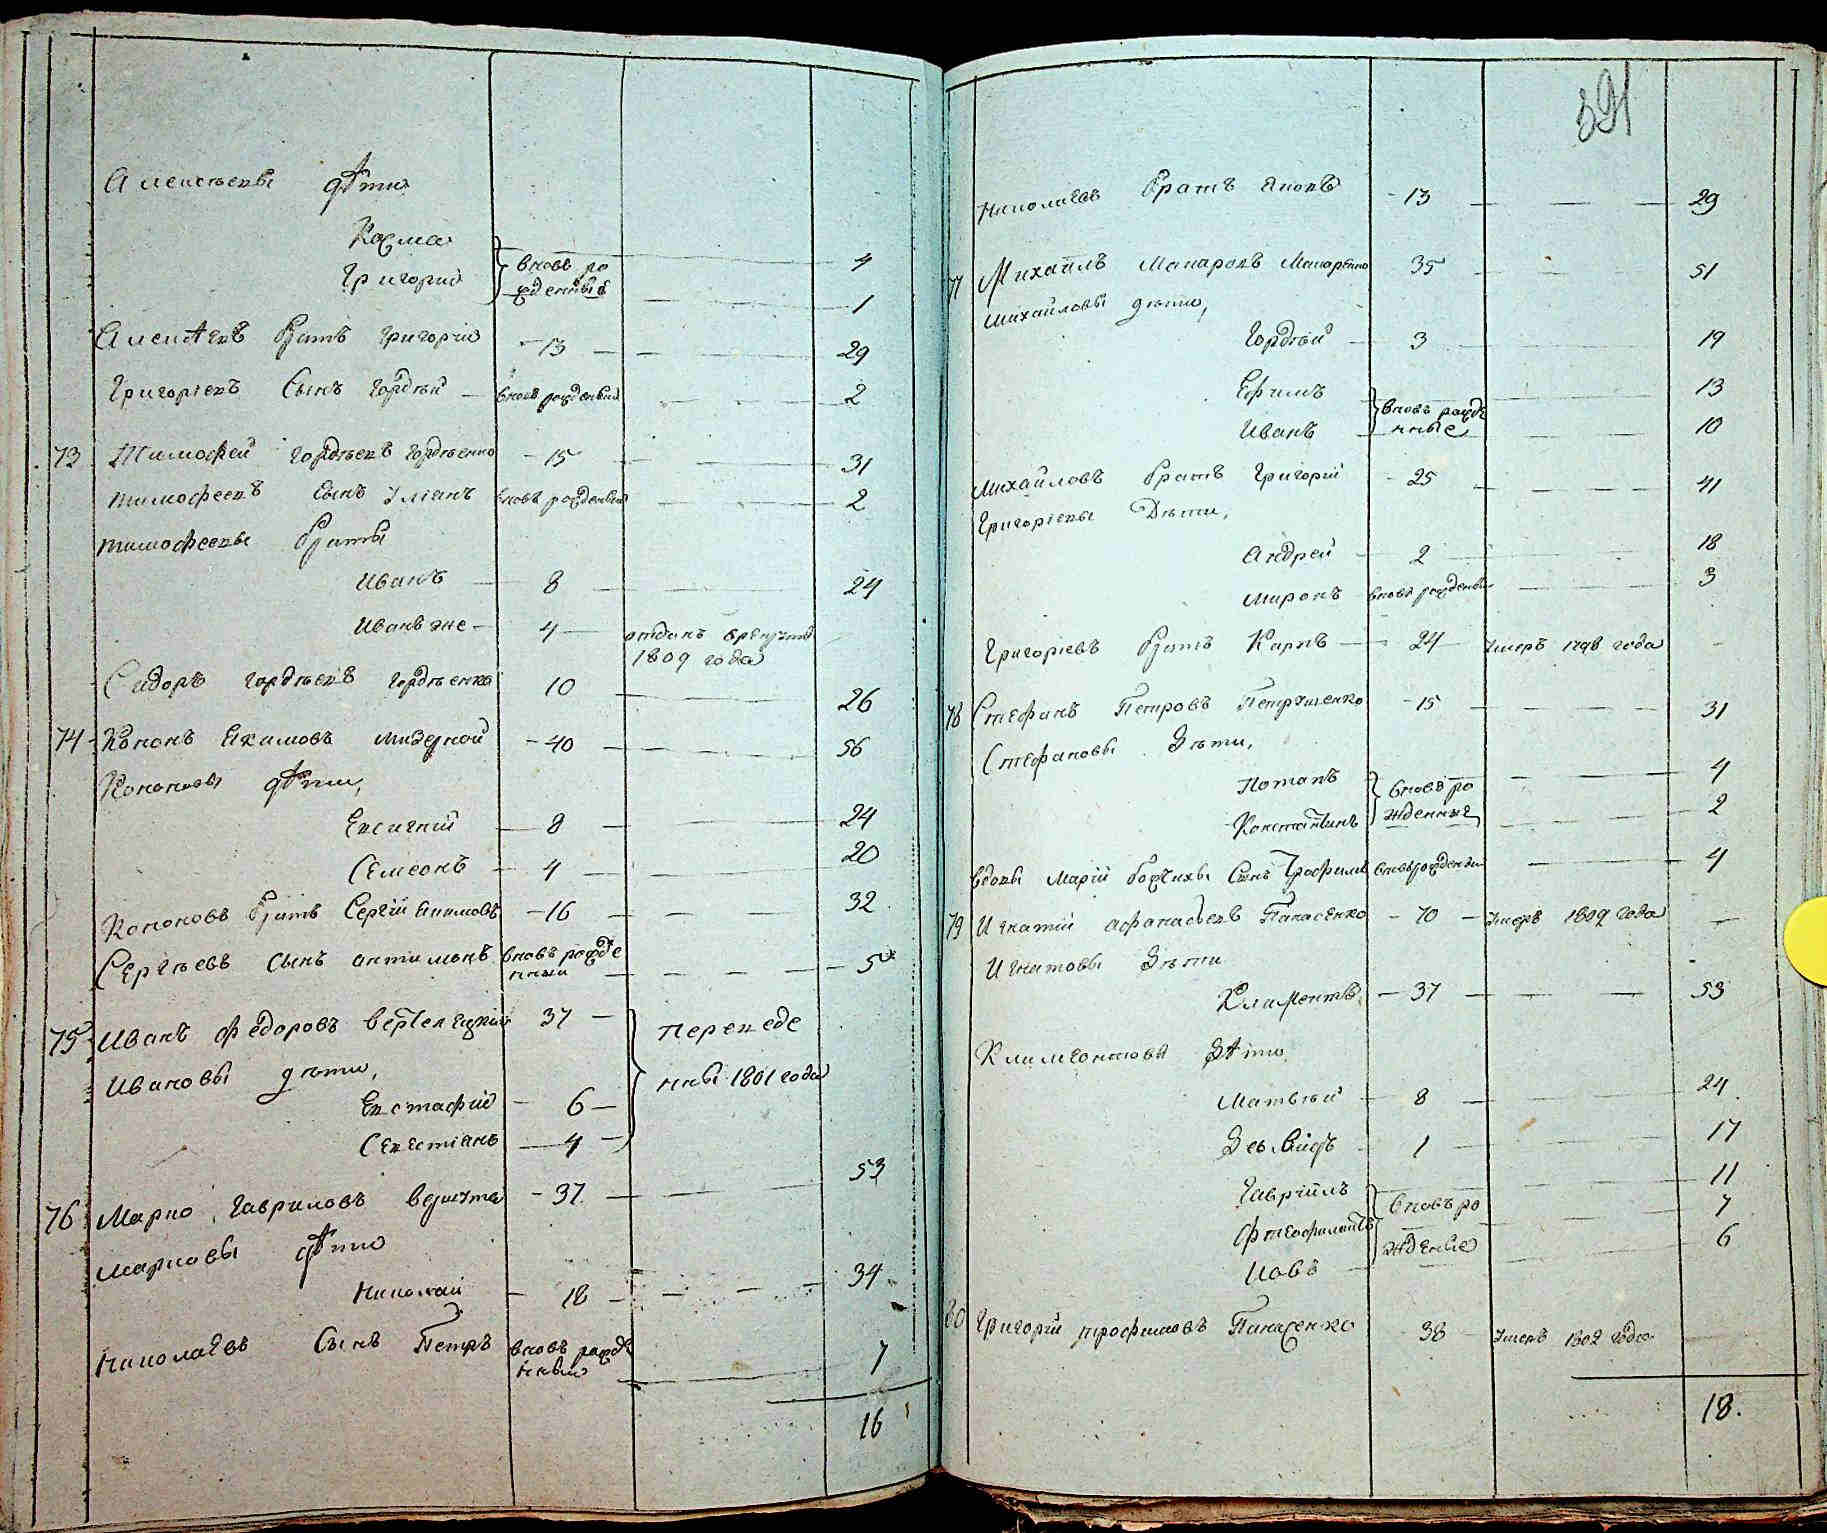 Алексеевы дѣти
Косма 4
Григорий } вновь рожденные 1
Алексѣевъ братъ григорій 13 29
Григоріевъ Сынъ гордѣй вновь рожденный 2
73 Тимофей гордѣевъ гордѣенко 15 31
тимофеевъ сынъ Уліанъ вновь рожденный 2
тимофеевы братья
Иванъ 8 24
Иванъ же 4 отданъ врекруты 1809 года
Сидоръ гордѣевъ гордѣенко 10 26
74 Кононъ Екимовъ мизерной 40 56
Кононовы дѣти,
Евсигній 8 24
Семеонъ 4 20
Кононовъ братъ Сергій Екимовъ 16 32
Сергѣевъ сынъ антимонъ вновь рожденный 5
75 Иванъ федоровъ вертелецкій 37
Ивановы дѣти, } переведены 1801 года
Евстафій 6
Севестіянъ 4
76 Марко гавриловъ 37 53
марковы дѣти
Николай 18 34
Николаевъ Сынъ Петръ вновь рожденный 7
16
391
Николаевъ братъ Яковъ 13 29
77 Михаилъ Макаровъ Макаренко 35 51
михайловы дѣти,
Гордѣй 3 19
Ефимъ 13
Иванъ } вновь рожденные 10
михайловъ братъ григорій 25 41
Григоріевы Дѣти,
Андрей 2 18
миронъ вновь рожденный 3
Григоріевъ братъ Карпъ 24 умеръ 1798 года
78 Стефанъ Петровъ Петрушенко 15 31
Стефановы Дѣти,
Потапъ 4
Константинъ } вновь рожденные 2
вдовы Марій Сынъ Трофимъ вновь рожденный 4
79 Игнатій афанасьевъ Панасенко 70 умеръ 1809 года
Игнатовы Дѣти
Климентъ 37 53
Климентовы Дѣти
Матвѣй 8 24
1 17
гавріилъ 11
фтеофилактъ } вновь рожденые 7
Иовъ 6
80 Григорій трофимовъ Панасенко 38 умеръ 1802 года
18.